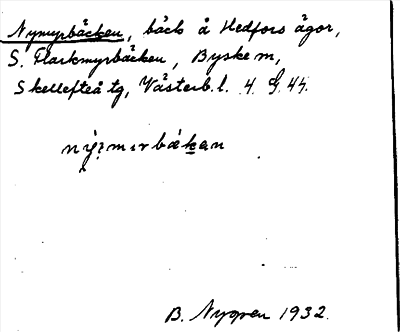 Nymyrbäcken, bäck å Hedfors ägor,
S. Flarkmyrbäcken, Byske sn,
Skellefteå tg, Västerb. l. 4. G. 44.
B. Nygren 1932.